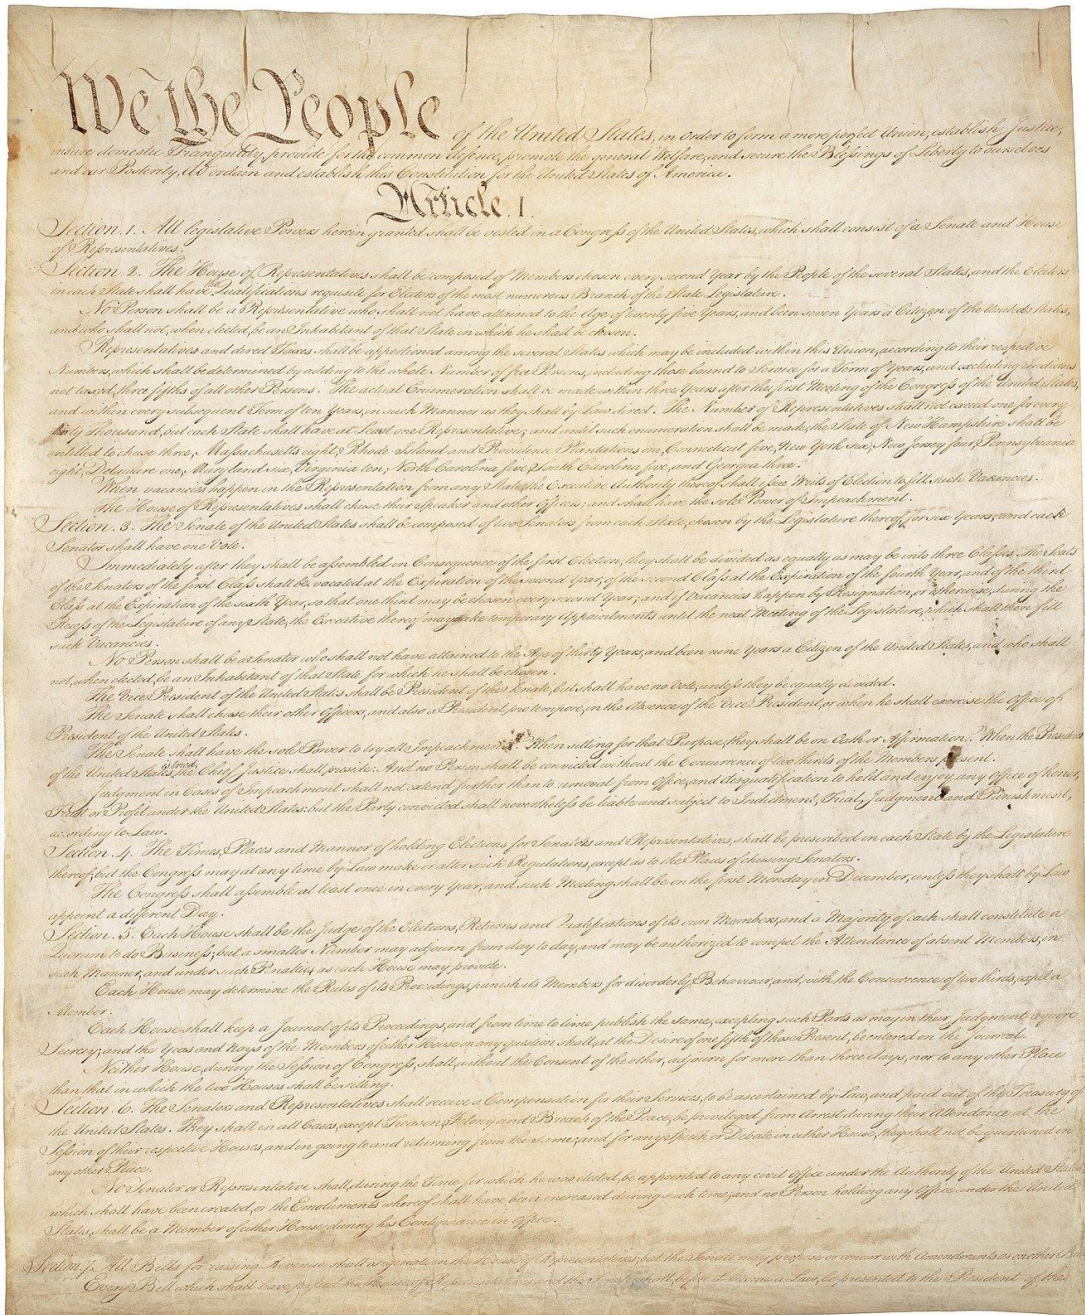 We the People of the United States, in Order to form a more perfect Union, establish Justice,
insure domestic Tranquility, provide for the common defence, promote the general Welfare, and secure the Blessings of Liberty to ourselves
and our Posterity, do ordain and establish this Constitution for the United States of America.
Article. I.
Section. 1. All legislative Powers herein granted shall be vested in a Congress of the United States, which shall consist of a Senate and House
of Representatives.
Section. 2. The House of Representatives shall be composed of Members chosen every second Year by the People of the several States, and the Electors
in each State shall have the Qualifications requisite for Electors of the most numerous Branch of the State Legislature.
No Person shall be a Representative who shall not have attained to the Age of twenty five Years, and been seven Years a Citizen of the United States,
and who shall not, when elected, be an Inhabitant of that State in which he shall be chosen.
Representatives and direct Taxes shall be apportioned among the several States which may be included within this Union, according to their respective
Numbers, which shall be determined by adding to the whole Number of free Persons, including those bound to Service for a Term of Years, and excluding Indians
not taxed, three fifths of all other Persons. The actual Enumeration shall be made within three Years after the first Meeting of the Congress of the United States,
and within every subsequent Term of ten Years, in such Manner as they shall by Law direct. The Number of Representatives shall not exceed one for every
thirty Thousand, but each State shall have at Least one Representative; and until such enumeration shall be made, the State of New Hampshire shall be
entitled to chuse three, Massachusetts eight, Rhode Island and Providence Plantations one, Connecticut five, New York six, New Jersey four, Pennsylvania
eight, Delaware one, Maryland six, Virginia ten, North Carolina five, South Carolina five, and Georgia three.
When vacancies happen in the Representation from any State, the Executive Authority thereof shall issue Writs of Election to fill such Vacancies.
The House of Representatives shall chuse their Speaker and other Officers; and shall have the sole Power of Impeachment.
Section. 3. The Senate of the United States shall be composed of two Senators from each State, chosen by the Legislature thereof, for six Years; and each
Senator shall have one Vote.
Immediately after they shall be assembled in Consequence of the first Election, they shall be divided as equally as may be into three Classes. The Seats
of the Senators of the first Class shall be vacated at the Expiration of the second Year, of the second Class at the Expiration of the fourth Year, and of the third
Class at the Expiration of the sixth Year, so that one third may be chosen every second Year; and if Vacancies happen by Resignation, or otherwise, during the
Recess of the Legislature of any State, the Executive thereof may make temporary Appointments until the next Meeting of the Legislature, which shall then fill
such Vacancies.
No Person shall be a Senator who shall not have attained to the Age of thirty Years, and been nine Years a Citizen of the United States, and who shall
not, when elected, be an Inhabitant of that State for which he shall be chosen.
The Vice President of the United States shall be President of the Senate, but shall have no Vote, unless they be equally divided.
The Senate shall chuse their other Officers, and also a President pro tempore, in the Absence of the Vice President, or when he shall exercise the Office of
President of the United States.
The Senate shall have the sole Power to try all Impeachments. When sitting for that Purpose, they shall be on Oath or Affirmation. When the President
of the United States is tried, the Chief Justice shall preside: And no Person shall be convicted without the Concurrence of two thirds of the Members present.
Judgment in Cases of Impeachment shall not extend further than to removal from Office, and disqualification to hold and enjoy any Office of honor,
Trust or Profit under the United States: but the Party convicted shall nevertheless be liable and subject to Indictment, Trial, Judgment and Punishment,
according to Law.
Section. 4. The Times, Places and Manner of holding Elections for Senators and Representatives, shall be prescribed in each State by the Legislature
thereof; but the Congress may at any time by Law make or alter such Regulations, except as to the Places of chusing Senators.
The Congress shall assemble at least once in every Year, and such Meeting shall be on the first Monday in December, unless they shall by Law
appoint a different Day.
Section. 5. Each House shall be the Judge of the Elections, Returns and Qualifications of its own Members, and a Majority of each shall constitute a
Quorum to do Business; but a smaller Number may adjourn from day to day, and may be authorized to compel the Attendance of absent Members, in
such Manner, and under such Penalties as each House may provide.
Each House may determine the Rules of its Proceedings, punish its Members for disorderly Behaviour, and, with the Concurrence of two thirds, expel a
Member.
Each House shall keep a Journal of its Proceedings, and from time to time publish the same, excepting such Parts as may in their Judgment require
Secrecy; and the Yeas and Nays of the Members of either House on any question shall, at the Desire of one fifth of those Present, be entered on the Journal.
Neither House, during the Session of Congress, shall, without the Consent of the other, adjourn for more than three days, nor to any other Place
than that in which the two Houses shall be sitting.
Section. 6. The Senators and Representatives shall receive a Compensation for their Services, to be ascertained by Law, and paid out of the Treasury of
the United States. They shall in all Cases, except Treason, Felony and Breach of the Peace, be privileged from Arrest during their Attendance at the
Session of their respective Houses, and in going to and returning from the same; and for any Speech or Debate in either House, they shall not be questioned in
any other Place.
No Senator or Representative shall, during the Time for which he was elected, be appointed to any civil Office under the Authority of the United States,
which shall have been created, or the Emoluments whereof shall have been increased during such time; and no Person holding any Office under the United
States, shall be a Member of either House during his Continuance in Office.
Section. 7. All Bills for raising Revenue shall originate in the House of Representatives; but the Senate may propose or concur with Amendments as on other Bills.
Every Bill which shall have passed the House of Representatives and the Senate, shall, before it become a Law, be presented to the President of the